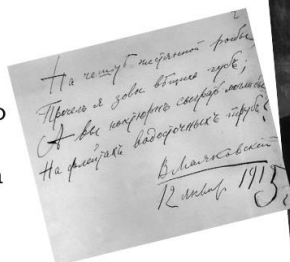 На чешуѣ жестянной рыбы
Прочелъ я зовы вѣщихъ губъ;
А вы ноктюрнъ сыграть могли бы
На флейтахъ водосточныхъ трубъ?
В Маяковский
12 январ 1913